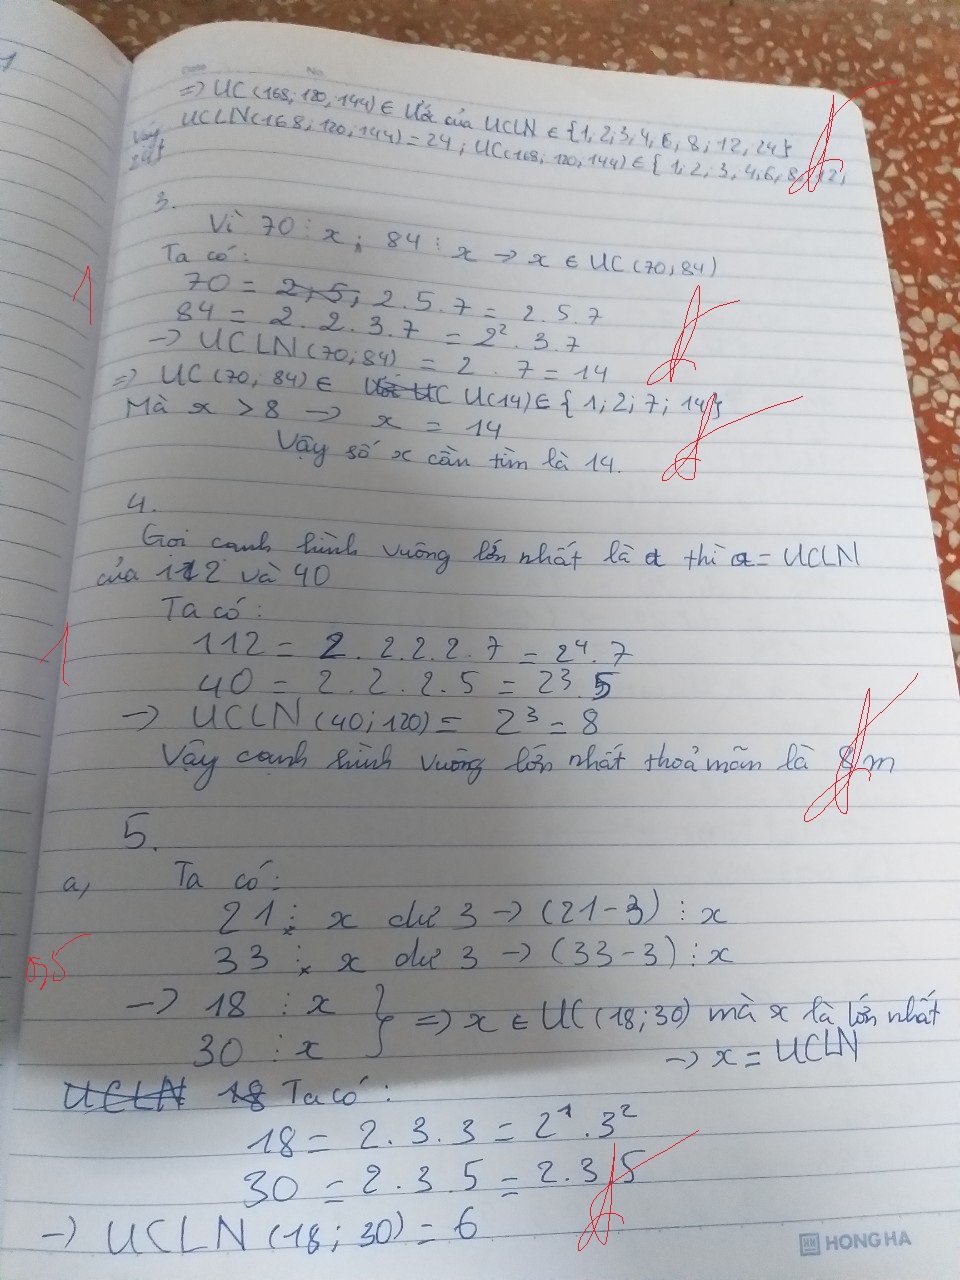 => UC(168; 120, 144) ∈ Ước của UCLN ∈ {1, 2; 3, 4, 6, 8; 12, 24}
Vậy UCLN(168; 120; 144) = 24; UC(168; 120; 144) ∈ {1; 2; 3, 4, 6, 8, 12;
24}
3.
Vì 70 ⋮ x; 84 ⋮ x -> x ∈ UC(70; 84)
Ta có:
70 = 2, 5, 2.5.7 = 2.5.7
84 = 2.2.3.7 = 2².3.7
-> UCLN(70; 84) = 2.7 = 14
=> UC(70, 84) ∈ Ước UC U(14) ∈ {1; 2; 7; 14}
Mà x > 8 -> x = 14
Vậy số x cần tìm là 14.
1
4.
Gọi cạnh hình vuông lớn nhất là a thì a = UCLN
của 112 và 40
Ta có:
112 = 2.2.2.2.7 = 2⁴.7
40 = 2.2.2.5 = 2³.5
-> UCLN(40; 120) = 2³ = 8
Vậy cạnh hình vuông lớn nhất thoả mãn là 8 m
1
5.
a, Ta có:
21 ⋮ x dư 3 -> (21-3) ⋮ x
33 ⋮ x dư 3 -> (33-3) ⋮ x
0,5
-> 18 ⋮ x
30 ⋮ x } => x ∈ UC(18; 30) mà x là lớn nhất
-> x = UCLN
UCLN 18 Ta có:
18 = 2.3.3 = 2¹.3²
30 = 2.3.5 = 2.3.5
-> UCLN(18; 30) = 6
HONG HA